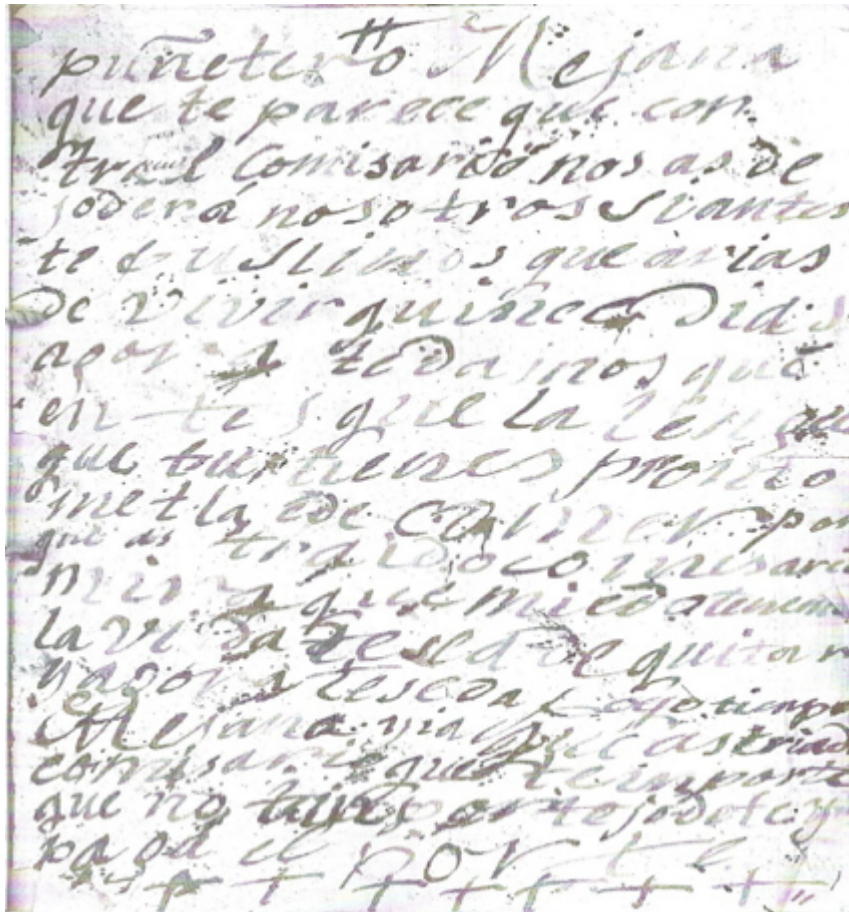 puñeterº Mejana
que te parece que con
tra el Comisario nos as de
joder á nosotros siantes
te dijimos que àrias
de vivir quince Dias
agora te damos que
en que la
que tu tienes pronto
metla ede comer por
que as traido comisario
mira que miedo tenemos
la vida te sed de quitar
yagora te seda poco tiempo
Mejana que as triado
comisario que te importe
que no te importe jodete y
paga el porte
+ + + + + + +